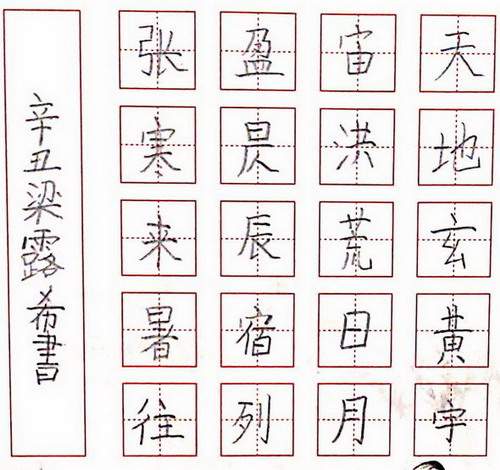 天地玄黄宇
宙洪荒日月
盈昃辰宿列
张寒来暑往
辛丑梁露希書